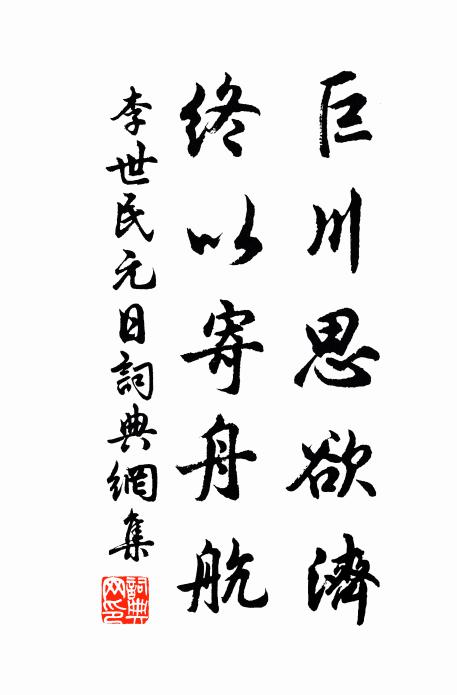 巨川思欲濟
終以寄舟航
李世民元日詞典網集
詞典網印